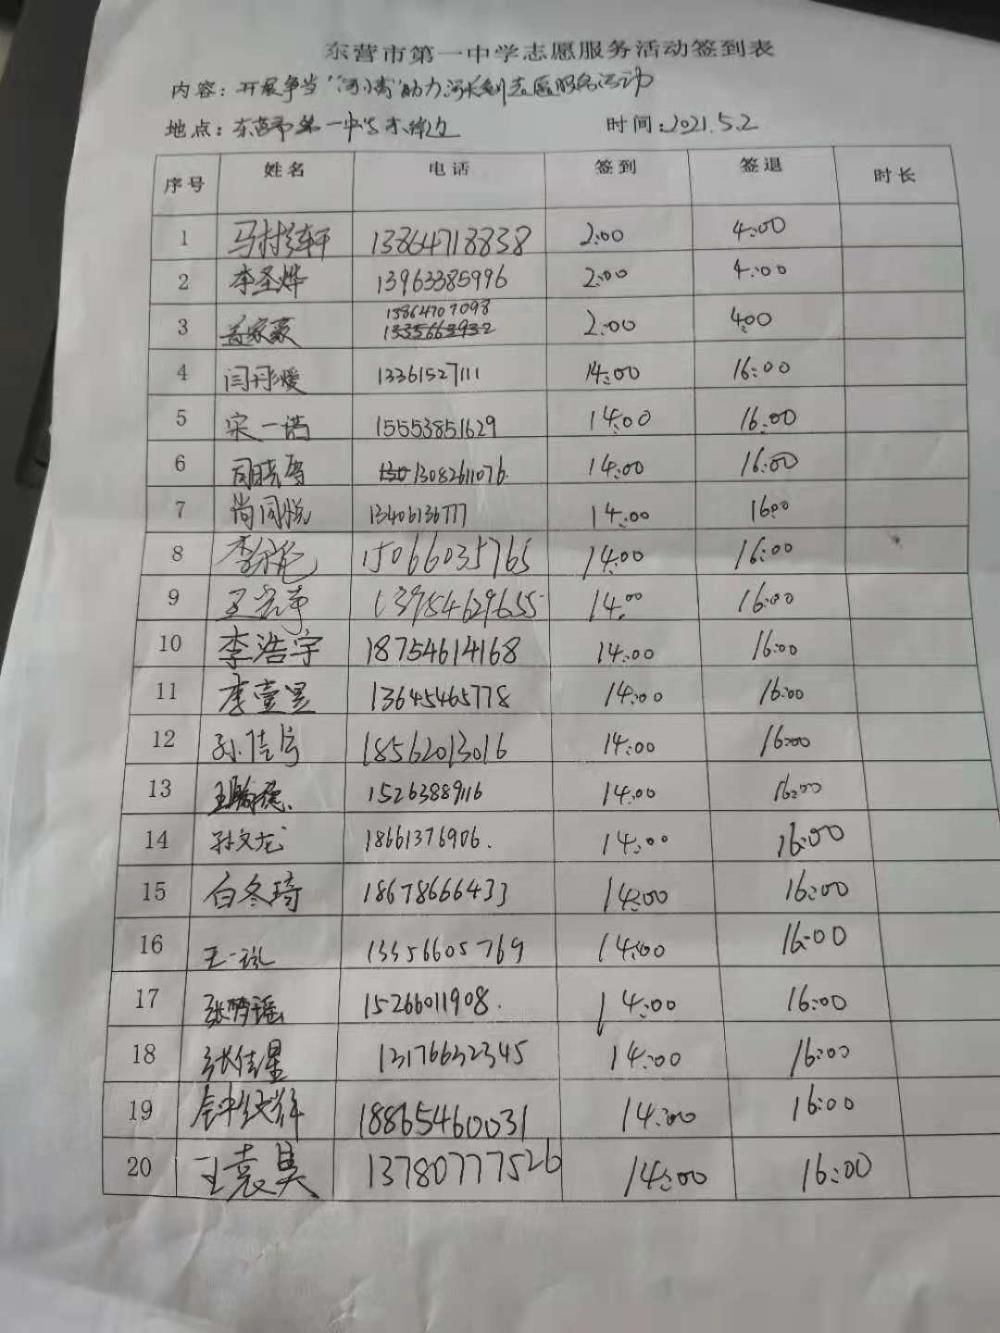 东营市第一中学志愿服务活动签到表
内容：开展争当"河小青"助力河长制志愿服务活动
地点：东营市第一中学 时间：2021.5.2
序号 姓名 电话 签到 签退 时长
1 13864718838 2:00 4:00
2 李圣烨 13963385996 2:00 4:00
3 家豪 13864707098 2:00 4:00
4 闫丹媛 13361527111 14:00 16:00
5 宋一诺 15553851629 14:00 16:00
6 13082611076 14:00 16:00
7 尚同悦 13406136777 14:00 16:00
8 15066035765 14:00 16:00
9 13954629655 14:00 16:00
10 李浩宇 18754614168 14:00 16:00
11 李壹昱 13645465778 14:00 16:00
12 孙佳 18562013016 14:00 16:00
13 15263889116 14:00 16:00
14 孙文龙 18661376906. 14:00 16:00
15 白冬琦 18678666433 14:00 16:00
16 王一 13356605769 14:00 16:00
17 15266011908. 14:00 16:00
18 张佳星 13176632345 14:00 16:00
19 18865460031 14:00 16:00
20 王袁昊 13780777526 14:00 16:00